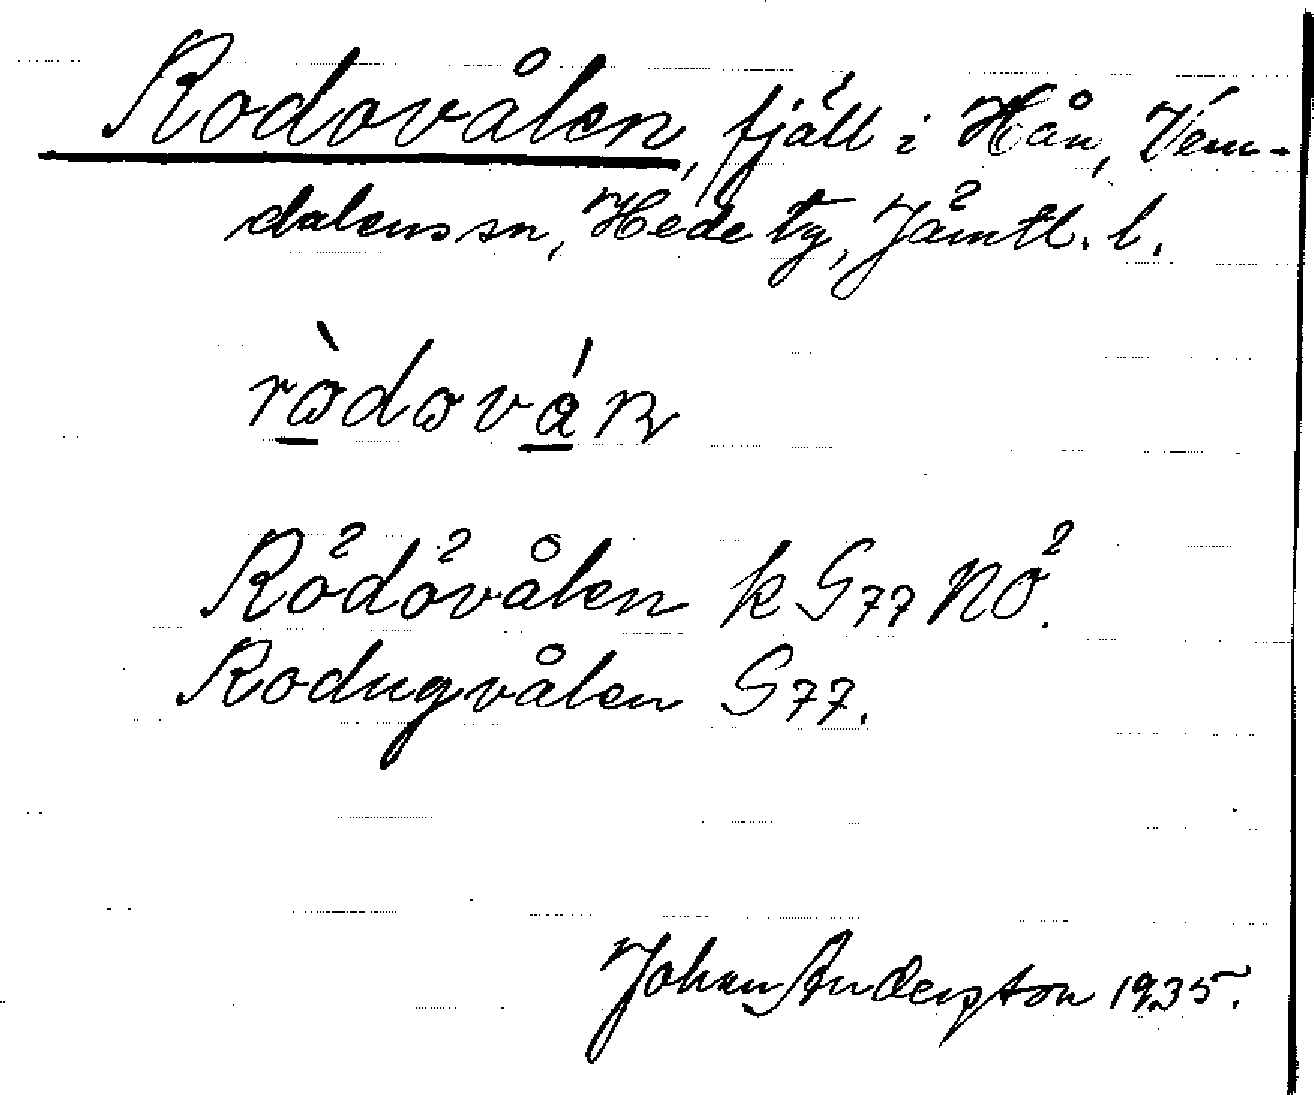 Rodovålen, fjäll i Hån, Vem-
dalens sn, Hede tg, Jämtl. l.
ròdová
Rödövålen k G77 NÖ.
Rodugvålen G77.
Johan Anderston 1935.